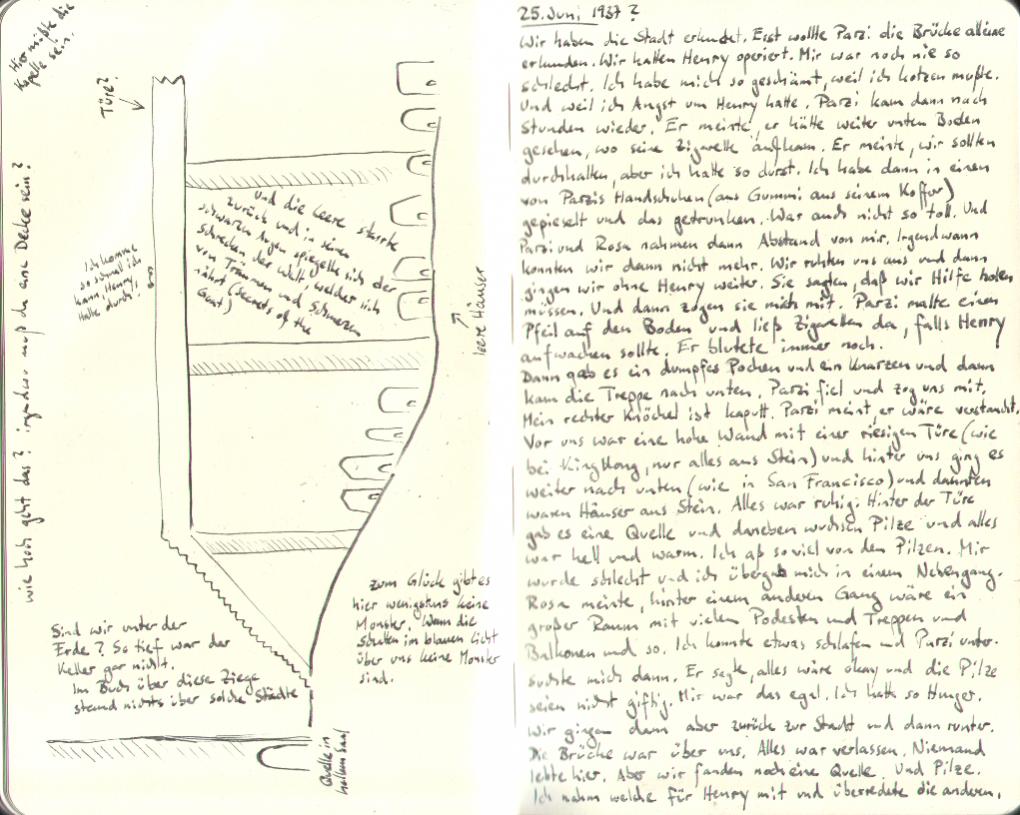 Hier müßte die
Kapelle sein.
Türe?
wie hoch geht das? irgendwo muß da eine Decke sein?
Ich komme
so schnell ich
kann Henry!
Halte durch!
und die Leere starrte
zurück und in seinen
schwarzen Augen spiegelte sich der
Schrecken der Welt, welcher sich
von Tränen und Schmerzen
nährt (secrets of the
Goat)
leere Häuser
zum Glück gibt es
hier wenigstens keine
Monster. Wenn die
Schatten im blauen Licht
über uns keine Monster
sind.
Sind wir unter der
Erde? So tief war der
Keller gar nicht.
Im Buch über diese Ziege
stand nichts über solche Städte
Quelle in
hellem Saal
25. Juni 1937?
Wir haben die Stadt erkundet. Erst wollte Parzi die Brücke alleine
erkunden. Wir hatten Henry operiert. Mir war noch nie so
schlecht. Ich habe mich so geschämt, weil ich kotzen mußte.
Und weil ich Angst um Henry hatte. Parzi kam dann nach
Stunden wieder. Er meinte, er hätte weiter unten Boden
gesehen, wo seine Zigarette aufkam. Er meinte, wir sollten
durchhalten, aber ich hatte so durst. Ich habe dann in einen
von Parzis Handschuhen (aus Gummi aus seinem Koffer)
gepieselt und das getrunken. War auch nicht so toll. Und
Parzi und Rosa nahmen dann Abstand von mir. Irgendwann
konnten wir dann nicht mehr. Wir ruhten uns aus und dann
gingen wir ohne Henry weiter. Sie sagten, daß wir Hilfe holen
müssen. Und dann zogen sie mich mit. Parzi malte einen
Pfeil auf den Boden und ließ Zigaretten da, falls Henry
aufwachen sollte. Er blutete immer noch.
Dann gab es ein dumpfes Pochen und ein Knarzen und dann
kam die Treppe nach unten. Parzi fiel und zog uns mit.
Mein rechter Knöchel ist kaputt. Parzi meint er wäre verstaucht.
Vor uns war eine hohe Wand mit einer riesigen Türe (wie
bei King Kong, nur alles aus Stein) und hinter uns ging es
weiter nach unten (wie in San Francisco) und da unten
waren Häuser aus Stein. Alles war ruhig. Hinter der Türe
gab es eine Quelle und daneben wuchsen Pilze und alles
war hell und warm. Ich aß so viel von den Pilzen. Mir
wurde schlecht und ich übergab mich in einem Nebengang.
Rosa meinte, hinter einem anderen Gang wäre ein
großer Raum mit vielen Podesten und Treppen und
Balkonen und so. Ich konnte etwas schlafen und Parzi unter-
suchte mich dann. Er sagte, alles wäre okay und die Pilze
seien nicht giftig. Mir war das egal. Ich hatte so Hunger.
Wir gingen dann aber zurück zur Stadt und dann runter.
Die Brücke war über uns. Alles war verlassen. Niemand
lebte hier. Aber wir fanden noch eine Quelle. Und Pilze.
Ich nahm welche für Henry mit und überredete die anderen,